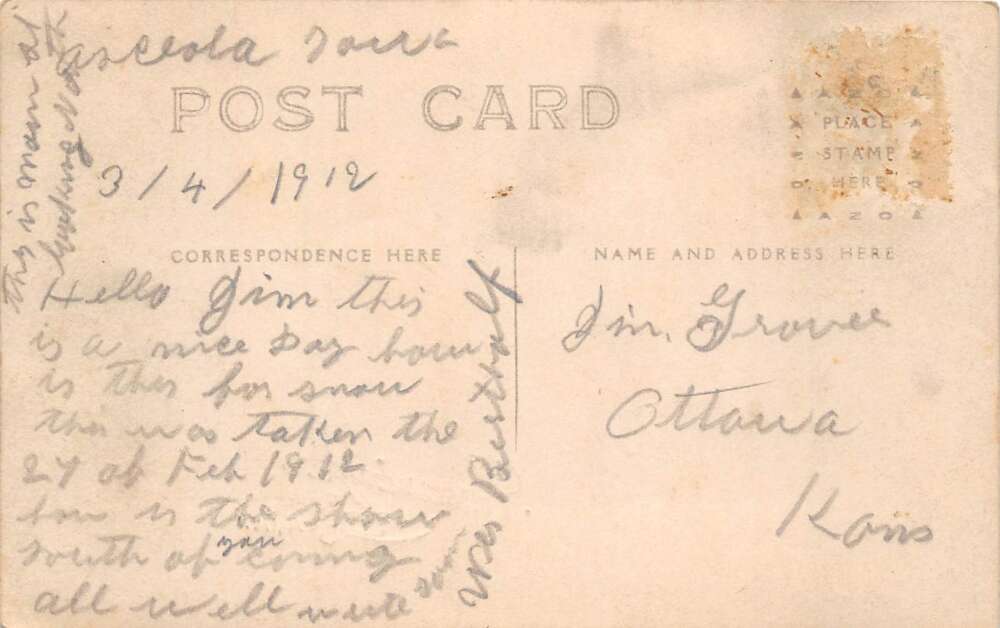 asceola Iowa
POST CARD
3/4/1912
PLACE
STAMP
HERE
AZO
CORRESPONDENCE HERE
NAME AND ADDRESS HERE
Hello Jim this
is a nice Day how
is this for snow
this was taken the
of Feb 1912
how is the snow
south of you
all well write soon
Wes
this is main st
looking North
Jim. Grovee
Ottawa
Kans